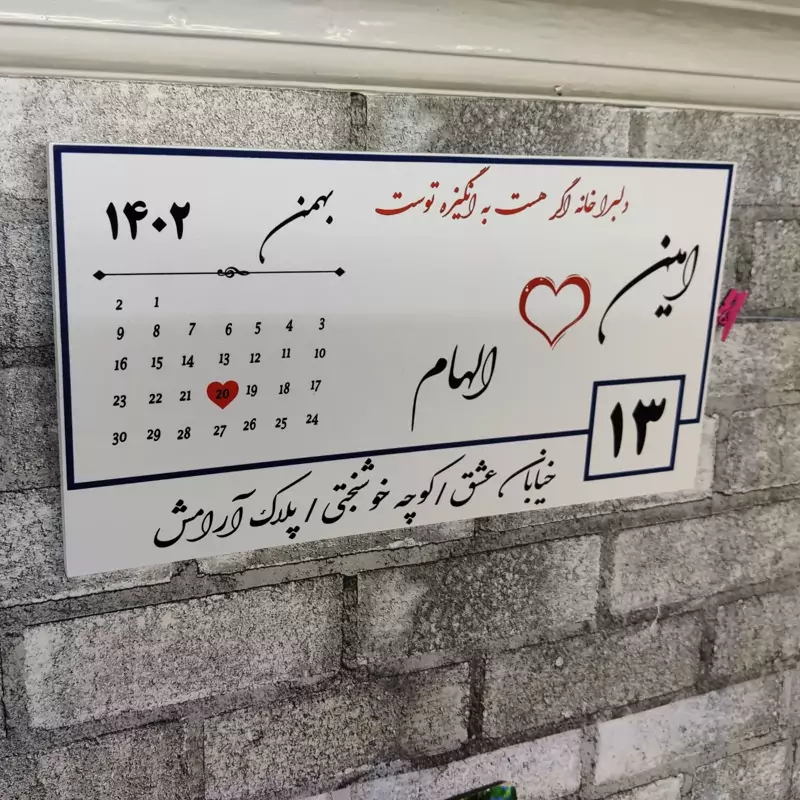 دلبرا خانه اگر هست به انگیزه توست
امین
الهام
۱۳
بهمن ۱۴۰۲
2 1
9 8 7 6 5 4 3
16 15 14 13 12 11 10
23 22 21 20 19 18 17
30 29 28 27 26 25 24
خیابان عشق / کوچه خوشبختی / پلاک آرامش